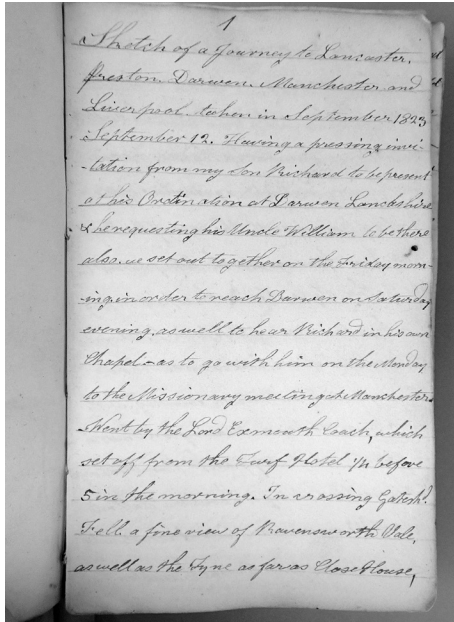 1
Sketch of a Journey to Lancaster.
Preston. Darwen. Manchester and
Liverpool taken in September 1823
September 12. Having a pressing invi-
-tation from my Son Richard to be present
at his Ordination at Darwen Lancashire
& he requesting his Uncle William to be there
also, we set out together on the Friday morn-
-ing in order to reach Darwen on Saturday
evening, as well to hear Richard in his own
Chapel - as to go with him on the Monday
to the Missionary meeting at Manchester.
Went by the Lord Exmouth Coach, which
set off from the Turf Hotel 1/4 before
5 in the morning. In crossing Gatesh.d
Fell a fine view of Ravensworth Vale,
as well as the Tyne as far as Close House,